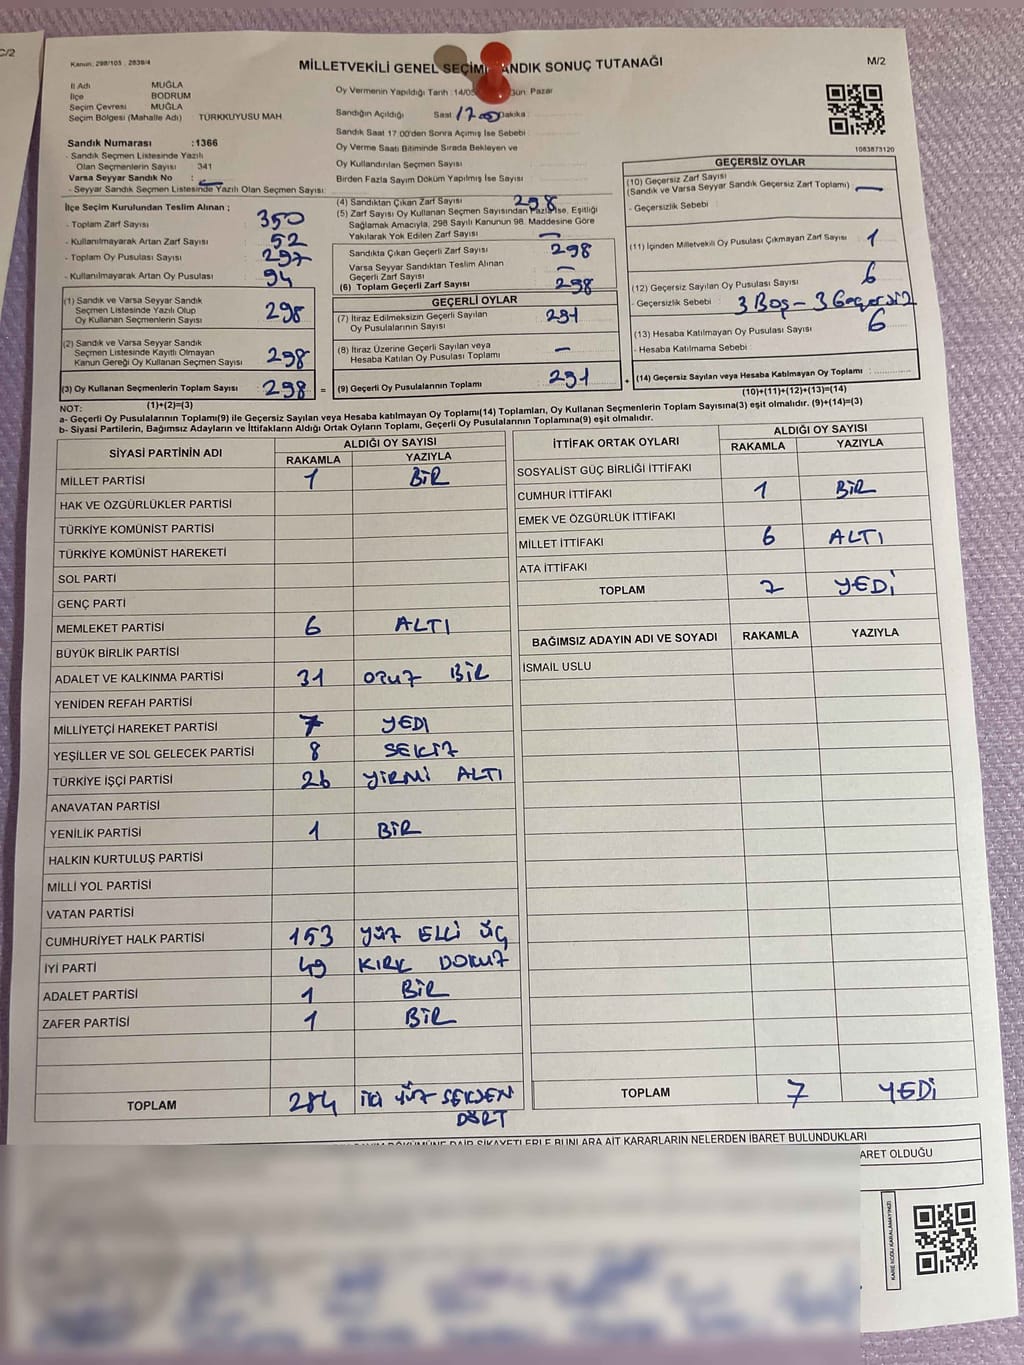 C/2
Kanun: 298/105 , 2839/4
MİLLETVEKİLİ GENEL SEÇİMİ SANDIK SONUÇ TUTANAĞI
M/2
İl Adı MUĞLA
İlçe BODRUM
Seçim Çevresi MUĞLA
Seçim Bölgesi (Mahalle Adı) TÜRKKUYUSU MAH
Oy Vermenin Yapıldığı Tarih :14/05 Gün: Pazar
Sandığın Açıldığı Saat 17 00 Dakika
Sandık Saat 17.00'den Sonra Açımış İse Sebebi :
Oy Verme Saati Bitiminde Sırada Bekleyen ve
Oy Kullandırılan Seçmen Sayısı :
Birden Fazla Sayım Döküm Yapılmış İse Sayısı :
1083873120
Sandık Numarası :1366
- Sandık Seçmen Listesinde Yazılı
Olan Seçmenlerin Sayısı 341
Varsa Seyyar Sandık No :
- Seyyar Sandık Seçmen Listesinde Yazılı Olan Seçmen Sayısı:
İlçe Seçim Kurulundan Teslim Alınan ;
- Toplam Zarf Sayısı 350
- Kullanılmayarak Artan Zarf Sayısı 52
- Toplam Oy Pusulası Sayısı 297
- Kullanılmayarak Artan Oy Pusulası 94
(1) Sandık ve Varsa Seyyar Sandık
Seçmen Listesinde Yazılı Olup
Oy Kullanan Seçmenlerin Sayısı 298
(2) Sandık ve Varsa Seyyar Sandık
Seçmen Listesinde Kayıtlı Olmayan
Kanun Gereği Oy Kullanan Seçmen Sayısı 298
(3) Oy Kullanan Seçmenlerin Toplam Sayısı 298 =
(1)+(2)=(3)
(4) Sandıktan Çıkan Zarf Sayısı 298
(5) Zarf Sayısı Oy Kullanan Seçmen Sayısından Fazla İse, Eşitliği
Sağlamak Amacıyla, 298 Sayılı Kanunun 98. Maddesine Göre
Yakılarak Yok Edilen Zarf Sayısı —
Sandıkta Çıkan Geçerli Zarf Sayısı 298
Varsa Seyyar Sandıktan Teslim Alınan
Geçerli Zarf Sayısı —
(6) Toplam Geçerli Zarf Sayısı 298
GEÇERLİ OYLAR
(7) İtiraz Edilmeksizin Geçerli Sayılan
Oy Pusulalarının Sayısı 291
(8) İtiraz Üzerine Geçerli Sayılan veya
Hesaba Katılan Oy Pusulası Toplamı —
(9) Geçerli Oy Pusulalarının Toplamı 291 +
GEÇERSİZ OYLAR
(10) Geçersiz Zarf Sayısı
(Sandık ve Varsa Seyyar Sandık Geçersiz Zarf Toplamı) —
- Geçersizlik Sebebi :
(11) İçinden Milletvekili Oy Pusulası Çıkmayan Zarf Sayısı 1
(12) Geçersiz Sayılan Oy Pusulası Sayısı 6
- Geçersizlik Sebebi : 3 Boş - 3 Geçersiz
(13) Hesaba Katılmayan Oy Pusulası Sayısı 6
- Hesaba Katılmama Sebebi :
(14) Geçersiz Sayılan veya Hesaba Katılmayan Oy Toplamı :
(10)+(11)+(12)+(13)=(14)
NOT:
a- Geçerli Oy Pusulalarının Toplamı(9) ile Geçersiz Sayılan veya Hesaba katılmayan Oy Toplamı(14) Toplamları, Oy Kullanan Seçmenlerin Toplam Sayısına(3) eşit olmalıdır. (9)+(14)=(3)
b- Siyasi Partilerin, Bağımsız Adayların ve İttifakların Aldığı Ortak Oyların Toplamı, Geçerli Oy Pusulalarının Toplamına(9) eşit olmalıdır.
SİYASİ PARTİNİN ADI ALDIĞI OY SAYISI
RAKAMLA YAZIYLA
MİLLET PARTİSİ 1 BİR
HAK VE ÖZGÜRLÜKLER PARTİSİ
TÜRKİYE KOMÜNİST PARTİSİ
TÜRKİYE KOMÜNİST HAREKETİ
SOL PARTİ
GENÇ PARTİ
MEMLEKET PARTİSİ 6 ALTI
BÜYÜK BİRLİK PARTİSİ
ADALET VE KALKINMA PARTİSİ 31 OTUZ BİR
YENİDEN REFAH PARTİSİ
MİLLİYETÇİ HAREKET PARTİSİ 7 YEDI
YEŞİLLER VE SOL GELECEK PARTİSİ 8 SEKİZ
TÜRKİYE İŞÇİ PARTİSİ 26 YİRMİ ALTI
ANAVATAN PARTİSİ
YENİLİK PARTİSİ 1 BİR
HALKIN KURTULUŞ PARTİSİ
MİLLİ YOL PARTİSİ
VATAN PARTİSİ
CUMHURİYET HALK PARTİSİ 153 YÜZ ELLİ ÜÇ
İYİ PARTİ 49 KIRK DOKUZ
ADALET PARTİSİ 1 BİR
ZAFER PARTİSİ 1 BİR
TOPLAM 284 İKİ YÜZ SEKSEN
DÖRT
İTTİFAK ORTAK OYLARI ALDIĞI OY SAYISI
RAKAMLA YAZIYLA
SOSYALİST GÜÇ BİRLİĞİ İTTİFAKI
CUMHUR İTTİFAKI 1 BİR
EMEK VE ÖZGÜRLÜK İTTİFAKI
MİLLET İTTİFAKI 6 ALTI
ATA İTTİFAKI
TOPLAM 7 YEDİ
BAĞIMSIZ ADAYIN ADI VE SOYADI RAKAMLA YAZIYLA
İSMAİL USLU
TOPLAM 7 YEDİ
DÖKÜMÜNE DAİR ŞİKAYETLERLE BUNLARA AİT KARARLARIN NELERDEN İBARET BULUNDUKLARI
ARET OLDUĞU
KARE KODU KARALAMAYINIZ!